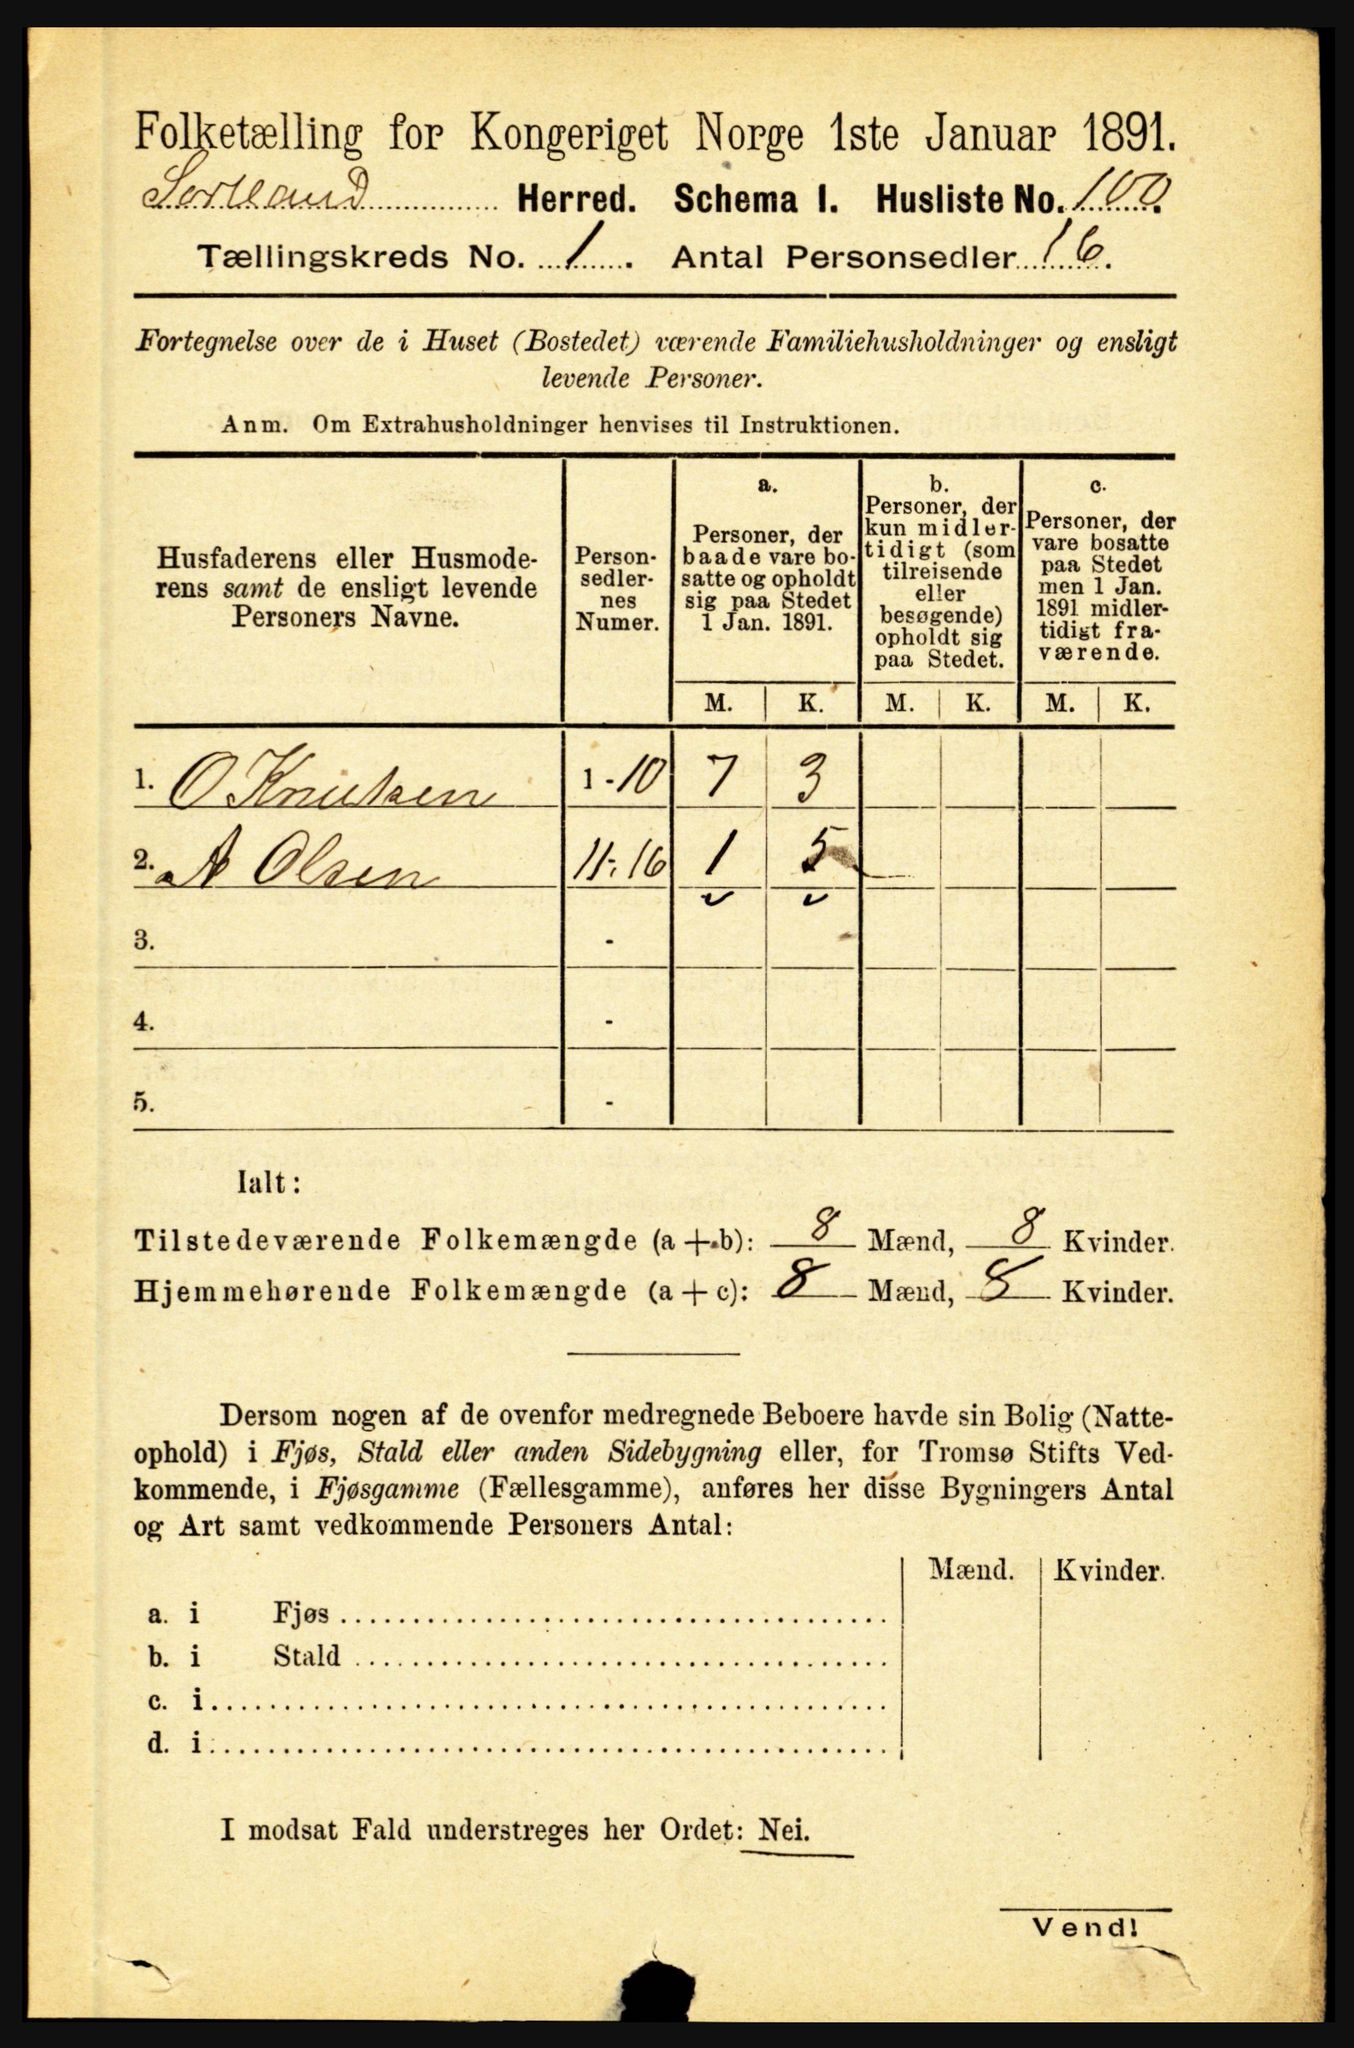 Folketælling for Kongeriget Norge 1ste Januar 1891.
Sortland Herred. Schema I. Husliste No. 100.
Tællingskreds No. 1. Antal Personsedler 16.
Fortegnelse over de i Huset (Bostedet) værende Familiehusholdninger og ensligt
levende Personer.
Anm. Om Extrahusholdninger henvises til Instruktionen.
Husfaderens eller Husmode-
rens samt de ensligt levende
Personers Navne.
Person-
sedler-
nes
Numer.
a.
Personer, der
baade vare bo-
satte og opholdt
sig paa Stedet
1 Jan. 1891.
b.
Personer, der
kun midler-
tidigt (som
tilreisende
eller
besøgende)
opholdt sig
paa Stedet.
c.
Personer, der
vare bosatte
paa Stedet
men 1 Jan.
1891 midler-
tidigt fra-
værende.
M. K. M. K. M. K.
1. O Knutsen 1-10 7 3
2. A Olsen 11-16 1 5
3. -
4. -
5. -
Ialt:
Tilstedeværende Folkemængde (a + b): 8 Mænd, 8 Kvinder.
Hjemmehørende Folkemængde (a + c): 8 Mænd, 8 Kvinder.
Dersom nogen af de ovenfor medregnede Beboere havde sin Bolig (Natte-
ophold) i Fjøs, Stald eller anden Sidebygning eller, for Tromsø Stifts Ved-
kommende, i Fjøsgamme (Fællesgamme), anføres her disse Bygningers Antal
og Art samt vedkommende Personers Antal:
Mænd. Kvinder.
a. i Fjøs
b. i Stald
c. i
d. i
I modsat Fald understreges her Ordet: Nei.
Vend!